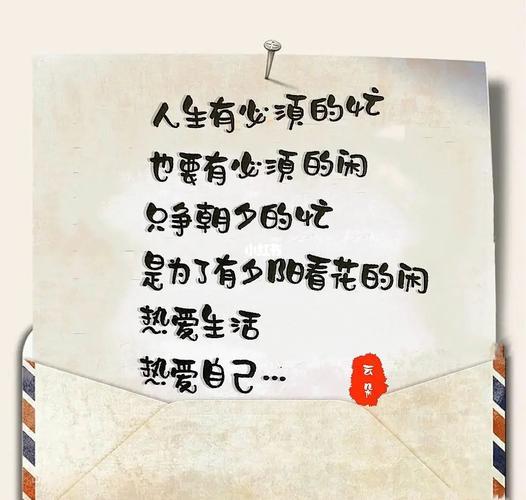 人生有必须的忙
也要有必须的闲
只争朝夕的忙
小红书
是为了有夕阳看花的闲
热爱生活
热爱自己…
云朵